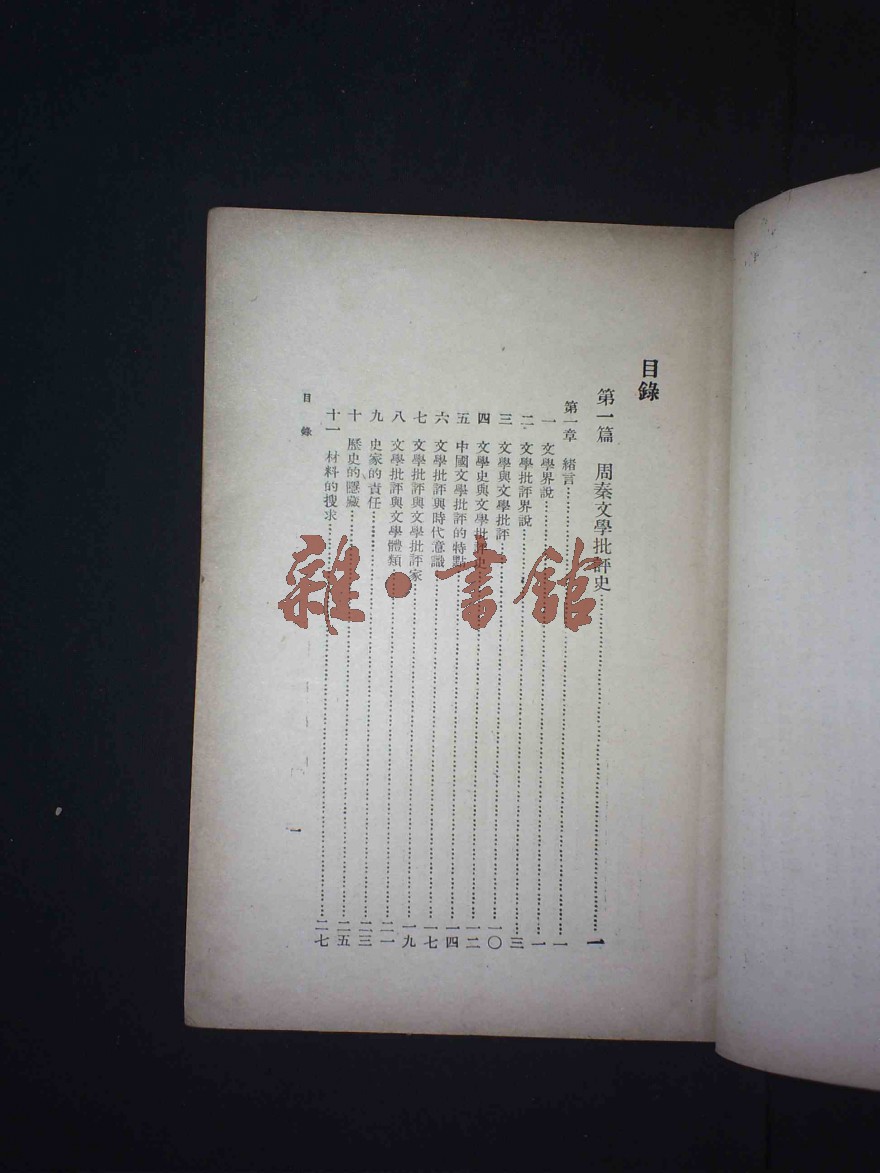 目錄
第一篇 周秦文學批評史……一
第一章 緒言……一
一 文學界說……一
二 文學批評界說……三
三 文學與文學批評……一〇
四 文學史與文學批評史……一二
五 中國文學批評的特點……一四
六 文學批評與時代意識……一七
七 文學批評與文學批評家……一九
八 文學批評與文學體類……二一
九 史家的責任……二三
十 歷史的隱藏……二五
十一 材料的搜求……二七
目錄
一
雜·書館